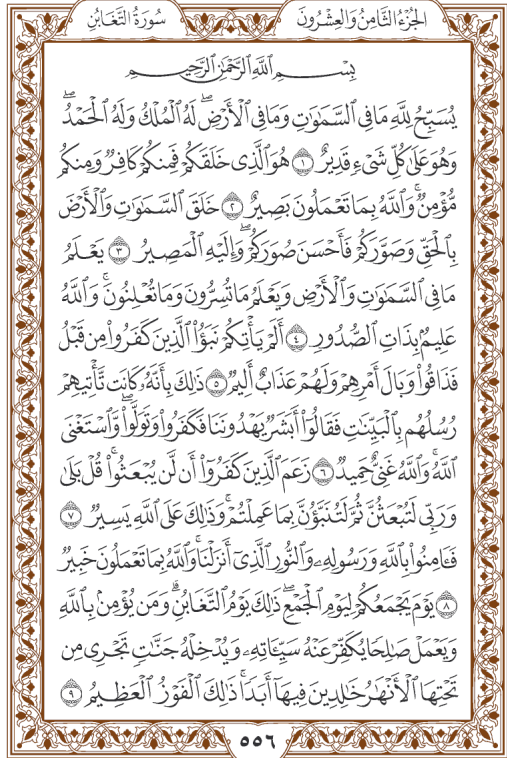 الجُزْءُ الثَّامِنُ وَالعِشْرُونَ سُورَةُ التَّغَابُنِ
بِسْمِ اللَّهِ الرَّحْمَٰنِ الرَّحِيمِ
يُسَبِّحُ لِلَّهِ مَا فِى السَّمَٰوَٰتِ وَمَا فِى الْأَرْضِ ۖ لَهُ الْمُلْكُ وَلَهُ الْحَمْدُ ۖ
وَهُوَ عَلَىٰ كُلِّ شَىْءٍ قَدِيرٌ ١ هُوَ الَّذِى خَلَقَكُمْ فَمِنكُمْ كَافِرٌ وَمِنكُم
مُّؤْمِنٌ ۚ وَاللَّهُ بِمَا تَعْمَلُونَ بَصِيرٌ ٢ خَلَقَ السَّمَٰوَٰتِ وَالْأَرْضَ
بِالْحَقِّ وَصَوَّرَكُمْ فَأَحْسَنَ صُوَرَكُمْ ۖ وَإِلَيْهِ الْمَصِيرُ ٣ يَعْلَمُ
مَا فِى السَّمَٰوَٰتِ وَالْأَرْضِ وَيَعْلَمُ مَا تُسِرُّونَ وَمَا تُعْلِنُونَ ۚ وَاللَّهُ
عَلِيمٌۢ بِذَاتِ الصُّدُورِ ٤ أَلَمْ يَأْتِكُمْ نَبَؤُا۟ الَّذِينَ كَفَرُوا۟ مِن قَبْلُ
فَذَاقُوا۟ وَبَالَ أَمْرِهِمْ وَلَهُمْ عَذَابٌ أَلِيمٌ ٥ ذَٰلِكَ بِأَنَّهُۥ كَانَت تَّأْتِيهِمْ
رُسُلُهُم بِالْبَيِّنَٰتِ فَقَالُوٓا۟ أَبَشَرٌ يَهْدُونَنَا فَكَفَرُوا۟ وَتَوَلَّوا۟ ۚ وَّاسْتَغْنَى
اللَّهُ ۚ وَاللَّهُ غَنِىٌّ حَمِيدٌ ٦ زَعَمَ الَّذِينَ كَفَرُوٓا۟ أَن لَّن يُبْعَثُوا۟ ۚ قُلْ بَلَىٰ
وَرَبِّى لَتُبْعَثُنَّ ثُمَّ لَتُنَبَّؤُنَّ بِمَا عَمِلْتُمْ ۚ وَذَٰلِكَ عَلَى اللَّهِ يَسِيرٌ ٧
فَـَٔامِنُوا۟ بِاللَّهِ وَرَسُولِهِۦ وَالنُّورِ الَّذِىٓ أَنزَلْنَا ۚ وَاللَّهُ بِمَا تَعْمَلُونَ خَبِيرٌ
٨ يَوْمَ يَجْمَعُكُمْ لِيَوْمِ الْجَمْعِ ۖ ذَٰلِكَ يَوْمُ التَّغَابُنِ ۗ وَمَن يُؤْمِنۢ بِاللَّهِ
وَيَعْمَلْ صَٰلِحًا يُكَفِّرْ عَنْهُ سَيِّـَٔاتِهِۦ وَيُدْخِلْهُ جَنَّٰتٍ تَجْرِى مِن
تَحْتِهَا الْأَنْهَٰرُ خَٰلِدِينَ فِيهَآ أَبَدًا ۚ ذَٰلِكَ الْفَوْزُ الْعَظِيمُ ٩
٥٥٦